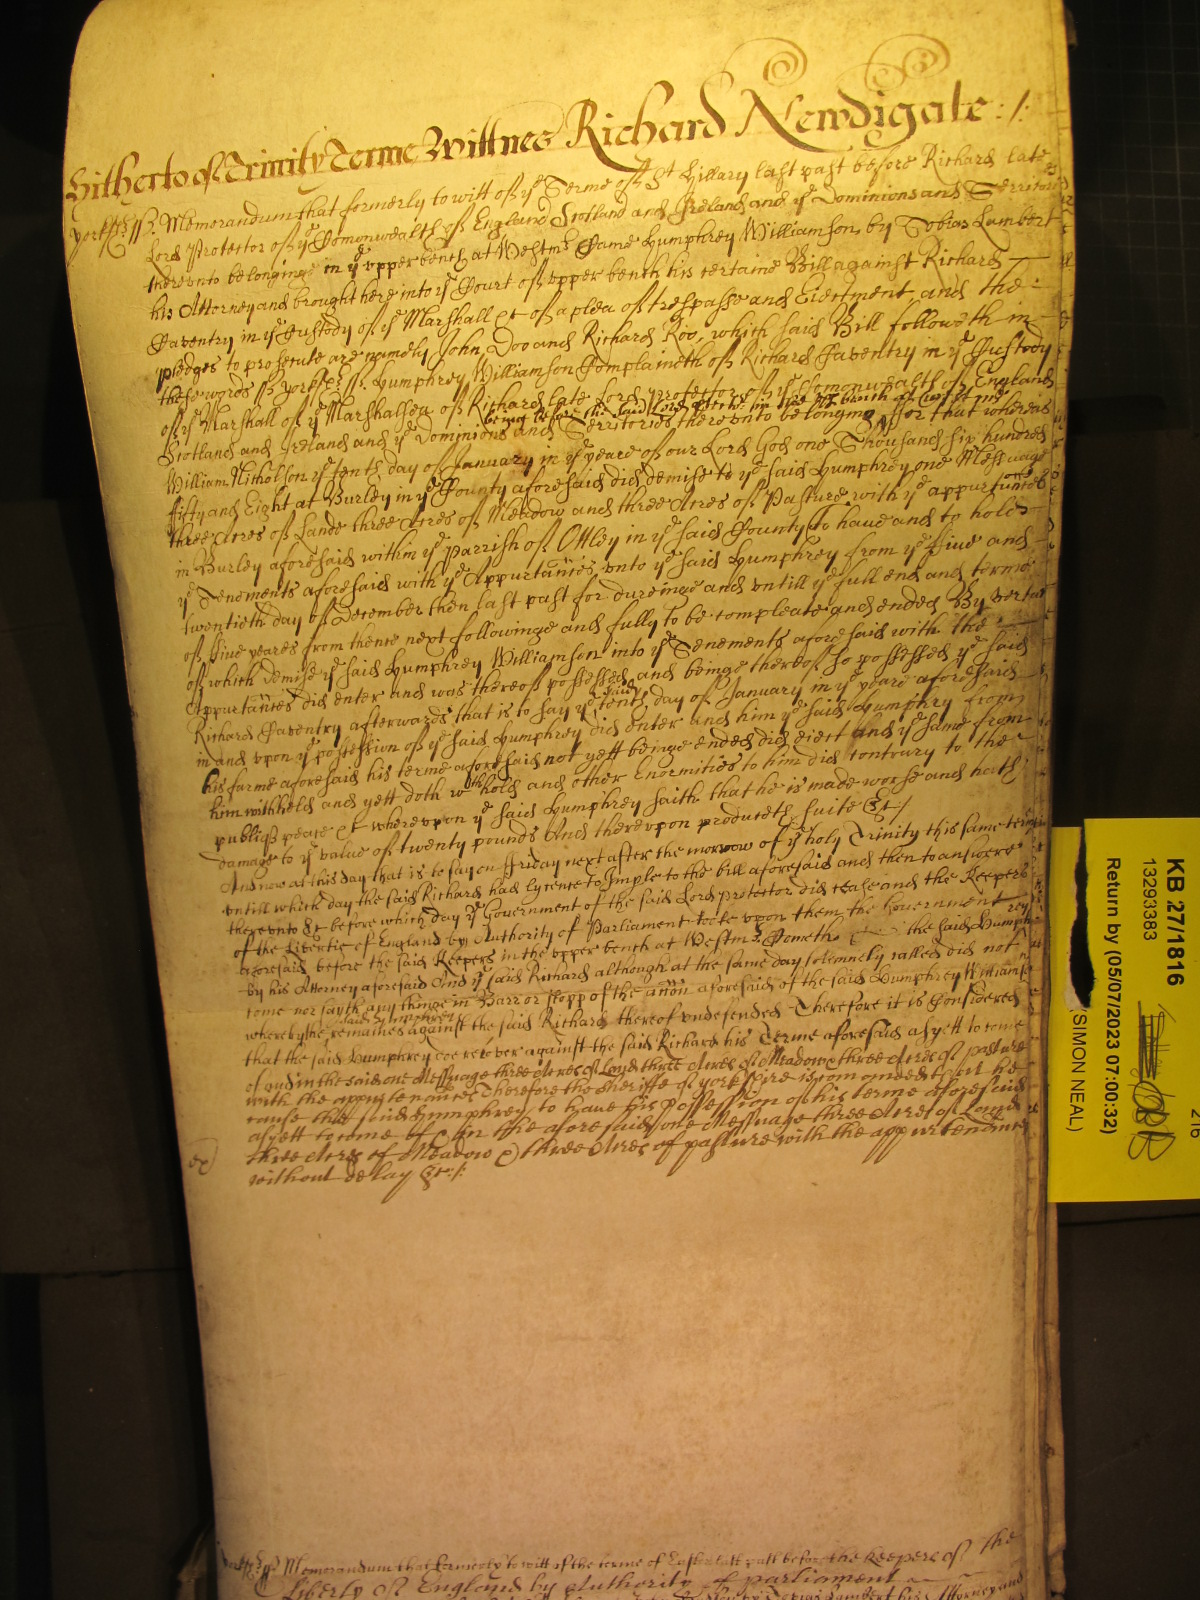 Hitherto of Trinity Terme Wittnes Richard Newdigate :/:
Yorksh ss. Memorandum that formerly to witt of ye Terme of St Hillary last past before Richard late
Lord Protector of ye Comonwealth of England Scotland and Ireland and ye Dominions and Territories
therevnto belonginge in ye vpper bench at Westmr Came Humphrey Williamson by Tobias Lambert
his Attorney and brought here into ye Court of vpper bench his certaine Bill against Richard
Daventry in ye Custody of ye Marshall &c of a plea of trespasse and Eiectment and the
pledges to prosecute are namely John Doo and Richard Roo, which said Bill followeth in
these words ss Yorksh ss. Humphrey Williamson Complaineth of Richard Daventry in ye Custody
of ye Marshall of ye Marshallsea of Richard late Lord Protector of ye Comonwealth of England
Scotland and Ireland and ye Dominions and Territories therevnto belonging for that whereas
being before the said Lord Protector in the vpper bench at Westmr
William Nicholson ye tenth day of January in ye yeare of our Lord God one Thousand six hundred
fifty and Eight at Burley in ye County aforesaid did demise to ye said Humphrey one Messuage
three Acres of Lande three Acres of Meadow and three Acres of Pasture with ye appurtunces
in Burley aforesaid within ye parrish of Ottley in ye said County To haue and to hold
ye Tenements aforesaid with ye Appurtances vnto ye said Humphrey from ye fiue and
twentieth day of December then last past for dureinge and vntill ye full end and terme
of fiue yeares from thence next followinge and fully to be compleate and ended By vertue
of which demise ye said Humphrey Williamson into ye Tenements aforesaid with the
Appurtances did enter and was thereof possessed and beinge thereof so possessed ye said
Richard Daventry afterwards that is to say ye said tenth day of January in ye yeare aforesaid
in and vpon ye possession of ye said Humphrey did enter and him ye said Humphrey from
his farme aforesaid his terme aforesaid not yett beinge ended did eiect and ye same from
him withheld and yett doth wthhold and other Enormities to him did contrary to the
publiq peace &c wherevpon ye said Humphrey saith that he is made worse and hath
damage to ye value of twenty pounds And therevpon produceth suite &c /
And now at this day that is to say on Friday next after the morrow of ye holy Trinity this same terme
vntill which day the said Richard had lycence to Imple to the bill aforesaid and then to answere
therevnto &c before which day ye Government of the said Lord protector did cease and the Keepers
of the Libertie of England by Authority of Parliament tooke vpon them the Government
aforesaid before the said Keepers in the vpper bench at Westmr Cometh the said Humphrey
by his Attorney aforesaid And ye said Richard although at the same day solemnely called did not
come nor sayth any thinge in Barr or stopp of the accon aforesaid of the said Humphrey Williamson
whereby the said Humphrey remaines against the said Richard thereof vndefended Therefore it is Considered
that the said Humphrey doe recover against the said Richard his Terme aforesaid as yett to come
of and in the said one Messuage three Acres of Land three Acres of Meadow & three Acres of pasture
with the appurtenances Therefore the Sheriffe of Yorkshire is comanded that he
cause the said Humphrey to haue his possession of his terme aforesaid
as yett to come of & in the aforesaid one Messuage three Acres of Land
ex three Acres of Meadow & three Acres of pasture with the appurtenances
without delay &c :/:
Yorksh ss Memorandum that formerly to witt of the terme of Easter last past before the Keepers of the
Liberty of England by Authority of parliament
Tobias Lambert his Attorney and
KB 27/1816
13293383
Return by (05/07/2023 07:00:32)
SIMON NEAL)